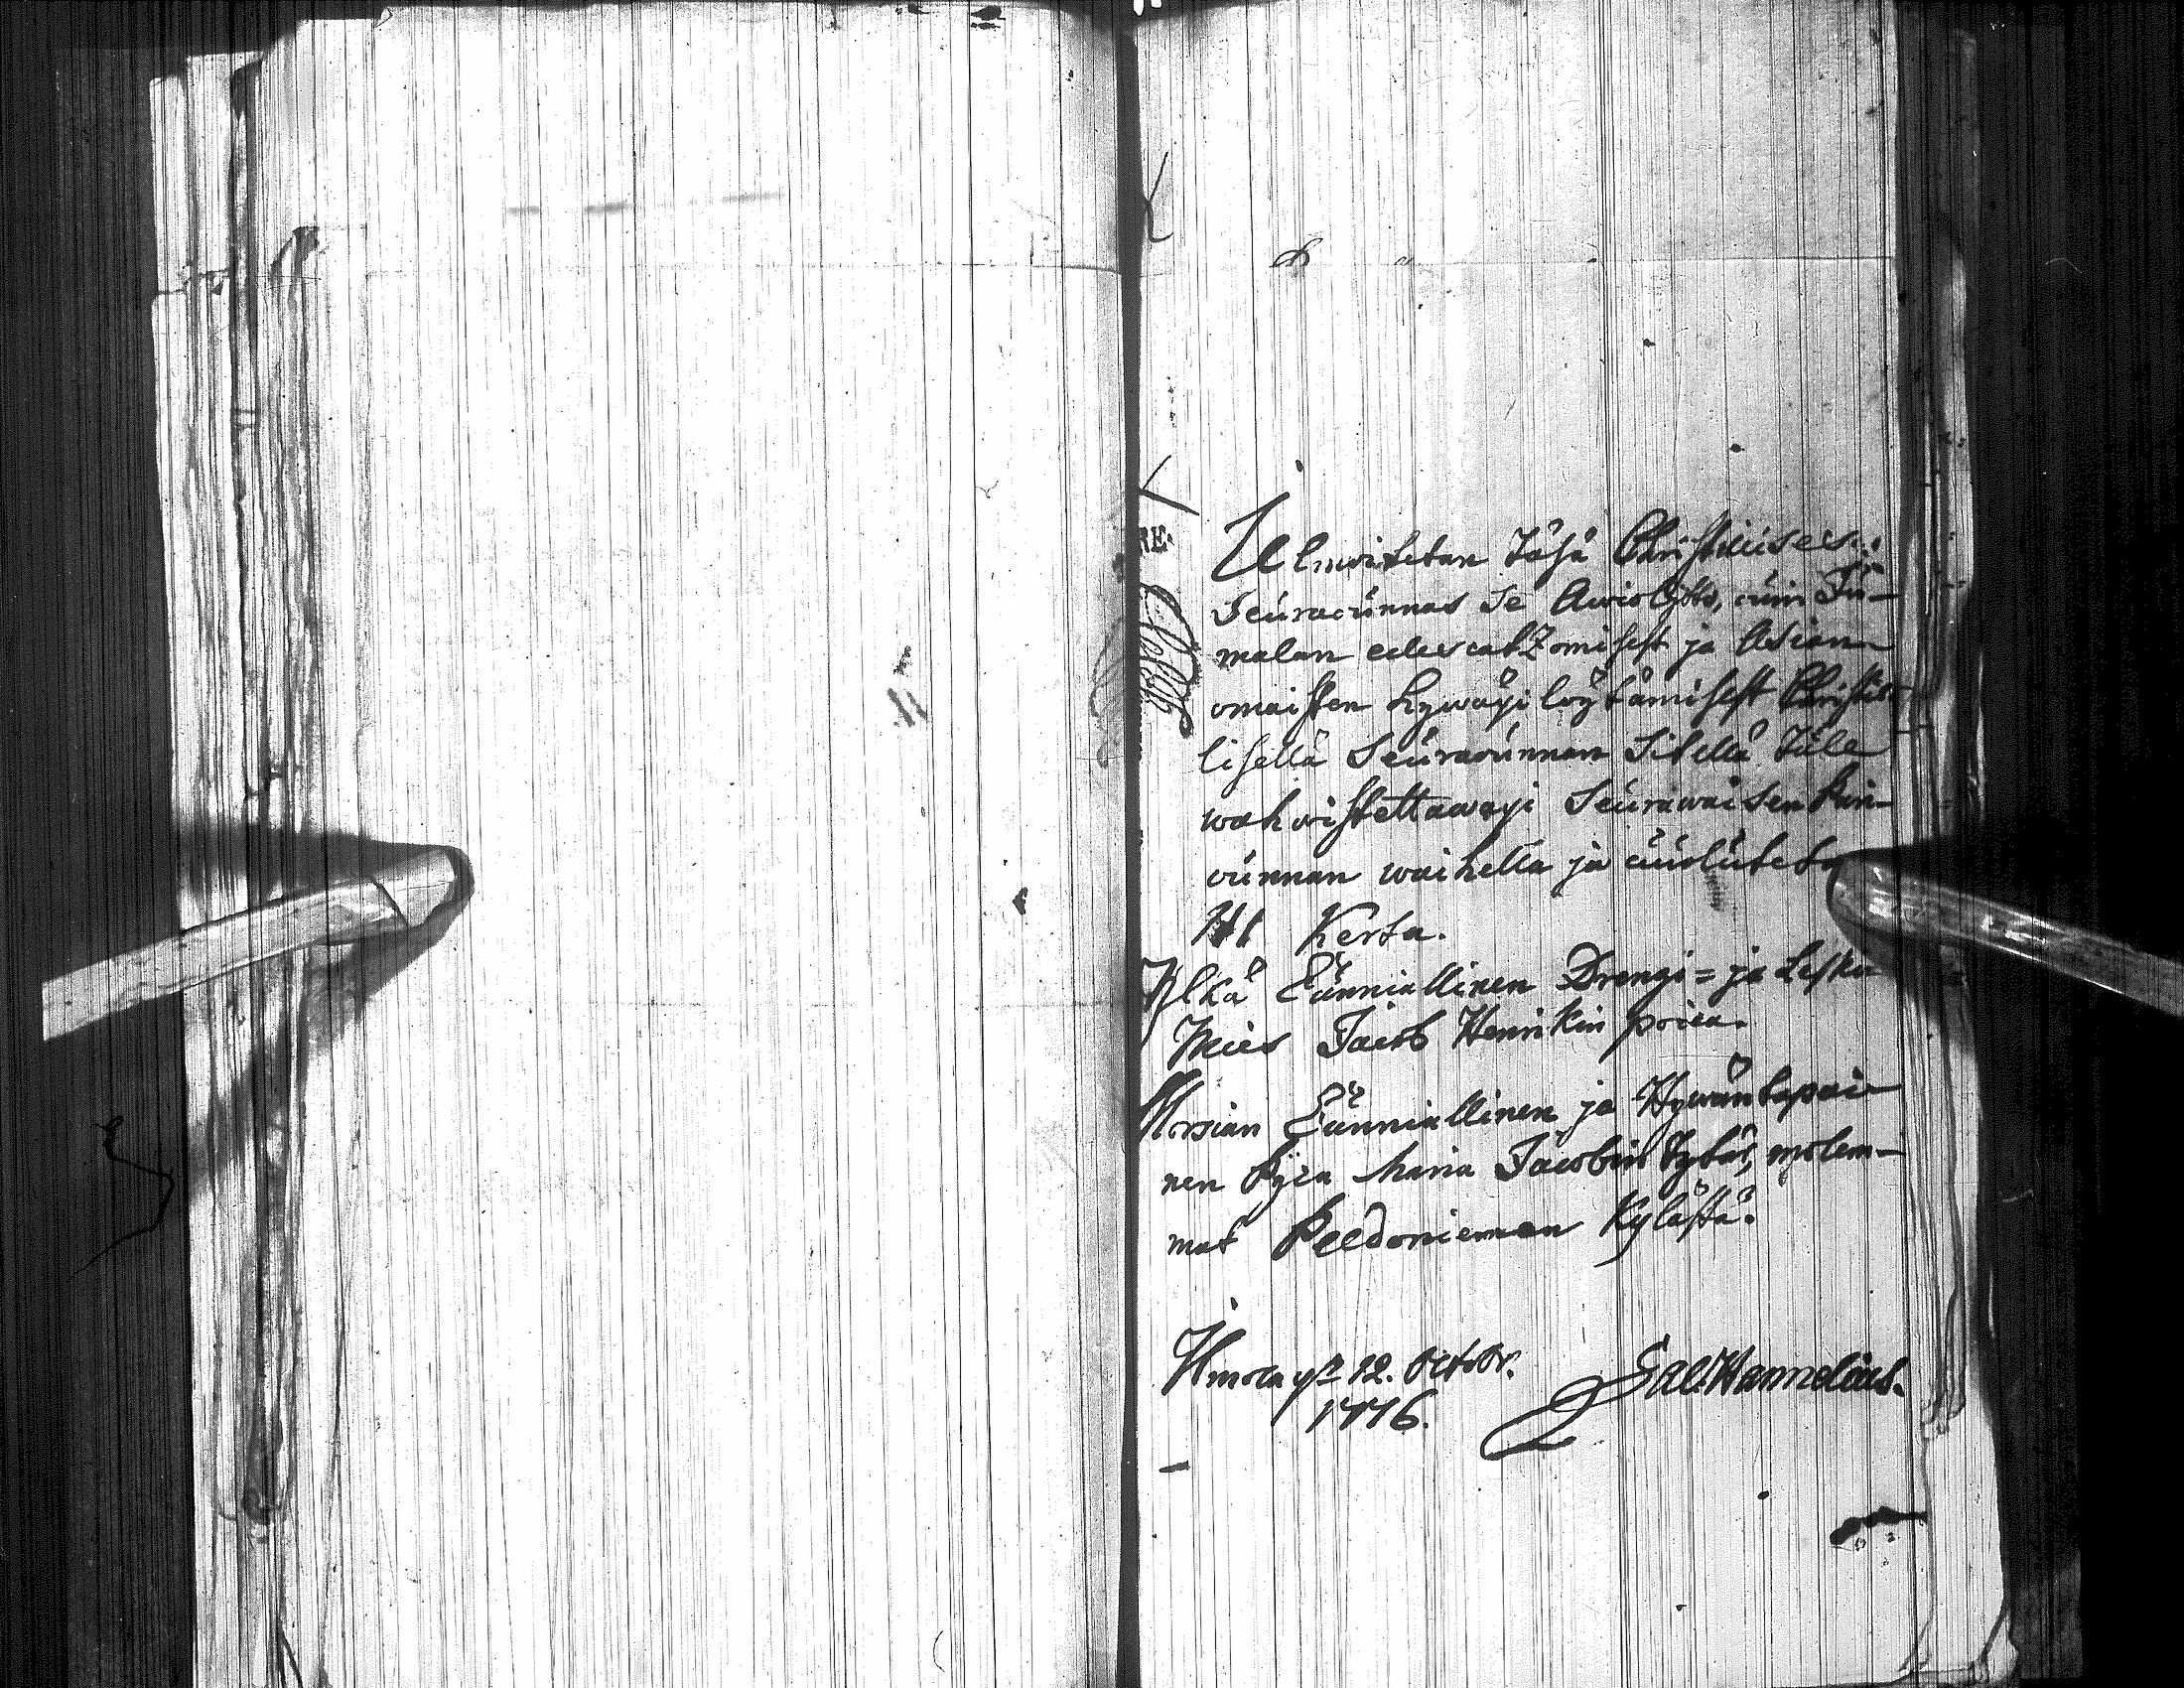 RE.
Ulmoitetan täsä Christillisees
Seuracunnas se Awioliitto, cuin Ju-
malan edescatzomisest ja Asian-
omaisten hywäxi löytämisest Christil-
lisellä Seuracunnan Sitellä tule
wahwistettawaxi Seurawaisen Pari-
cunnan waihella ja cuulutetan
1 Kerta.
Ylkä Cunniallinen Drengi= ja Leski
Mies Jacob Henrikin poica.
Morsian Cunniallinen ja Hywäntapai-
nen Pijca Maria Jacobin tytär, molem-
mat Peldoniemen Kylästä.
12. Octobr.
1776.
Hannelius.